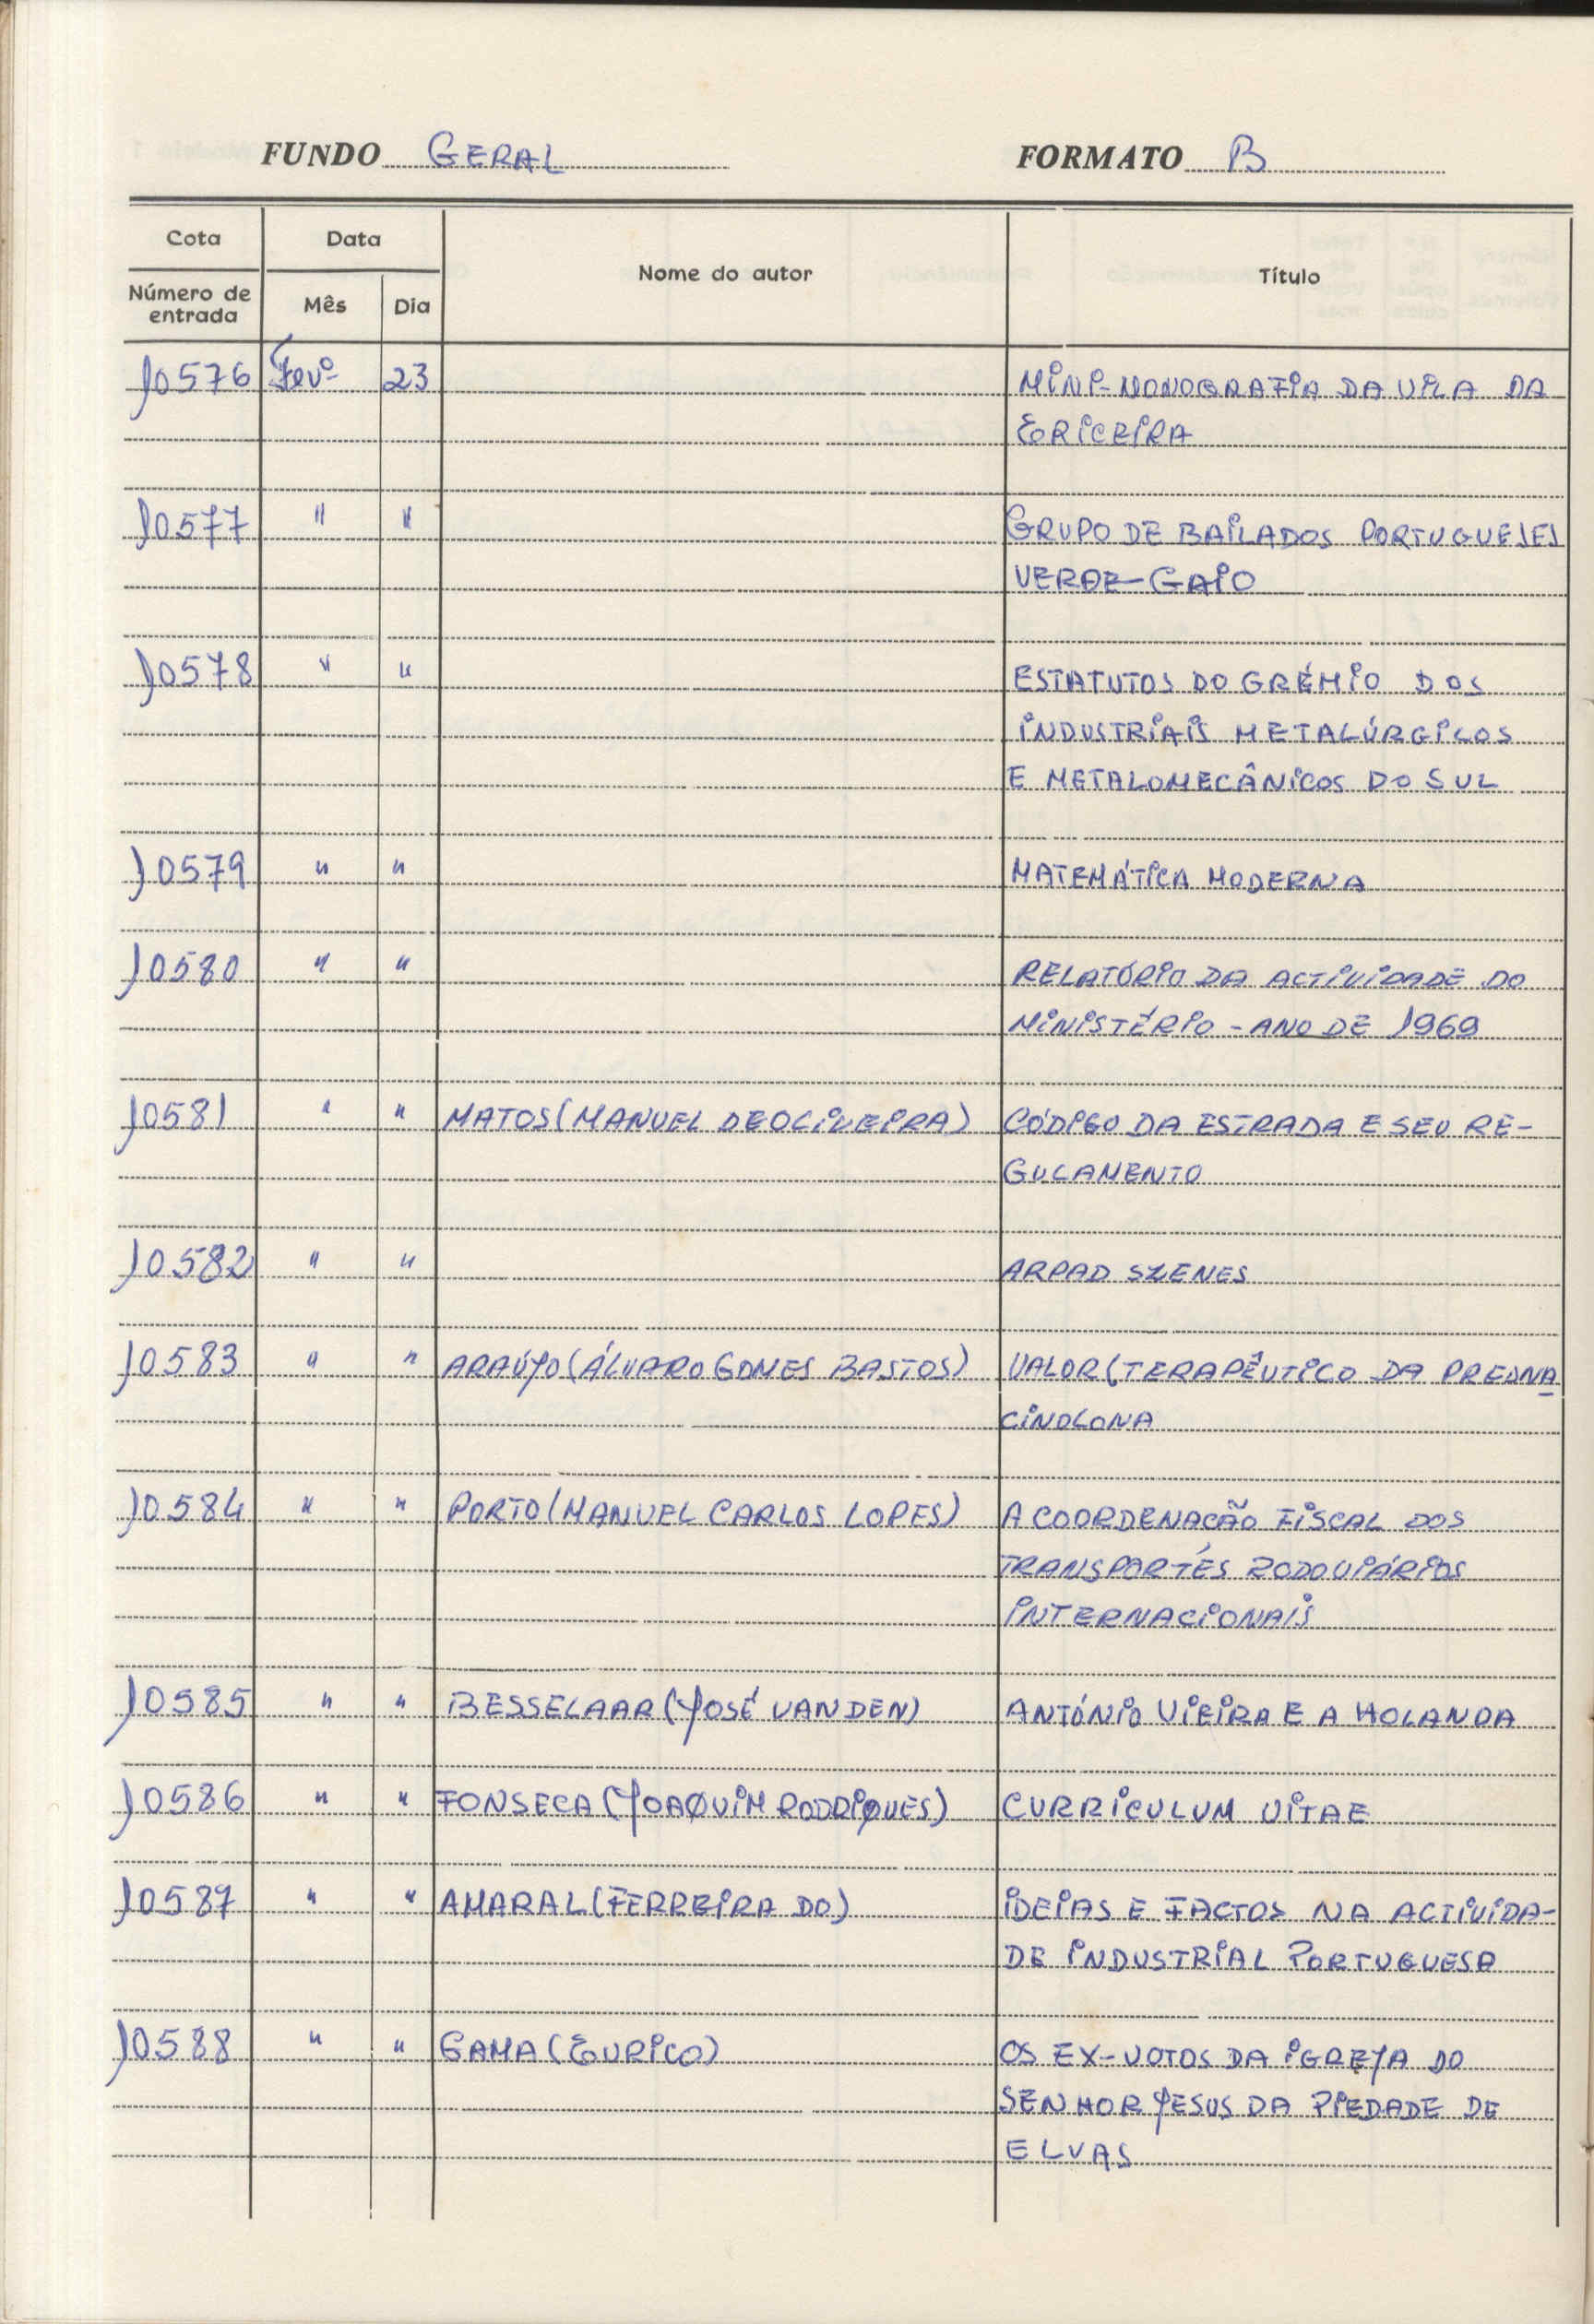 FUNDO GERAL FORMATO B
Cota Data Nome do autor Título
Número de entrada Mês Dia
10576 Fevº 23 MINI-MONOGRAFIA DA VILA DA
ERICEIRA
10577 " " GRUPO DE BAILADOS PORTUGUESES
VERDE-GAIO
10578 " " ESTATUTOS DO GRÉMIO DOS
INDUSTRIAIS METALÚRGICOS
E METALOMECÂNICOS DO SUL
10579 " " MATEMÁTICA MODERNA
10580 " " RELATÓRIO DA ACTIVIDADE DO
MINISTÉRIO - ANO DE 1969
10581 " " MATOS (MANUEL DE OLIVEIRA) CÓDIGO DA ESTRADA E SEU RE-
GULAMENTO
10582 " " ARPAD SZENES
10583 " " ARAÚJO (ÁLVARO GOMES BASTOS) VALOR (TERAPÊUTICO DA PREDNA
CINOLONA
10584 " " PORTO (MANUEL CARLOS LOPES) A COORDENAÇÃO FISCAL DOS
TRANSPORTES RODOVIÁRIOS
INTERNACIONAIS
10585 " " BESSELAAR (JOSÉ VAN DEN) ANTÓNIO VIEIRA E A HOLANDA
10586 " " FONSECA (JOAQUIM RODRIGUES) CURRICULUM VITAE
10587 " " AMARAL (FERREIRA DO) IDEIAS E FACTOS NA ACTIVIDA-
DE INDUSTRIAL PORTUGUESA
10588 " " GAMA (EURICO) OS EX-VOTOS DA IGREJA DO
SENHOR JESUS DA PIEDADE DE
ELVAS